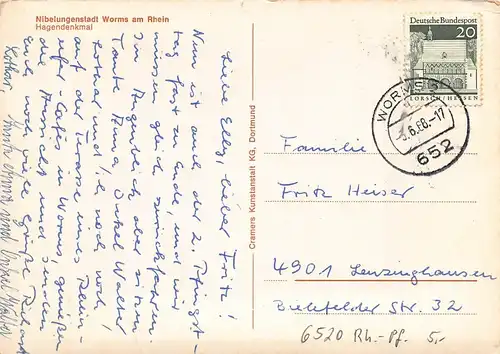 Nibelungenstadt Worms am Rhein
Hagendenkmal
Liebe Elly, lieber Fritz!
Nun ist auch der 2. Pfingst-
tag fast zu Ende, und wir
müssen gleich zurückfahren.
Im Augenblick aber sitzen
Tante Anna, Onkel Walter
Lothar und ich noch
auf der Terasse eines Rhein-
ufer-Cafés in Worms, genießen
die Aussicht und senden
Euch noch viele Grüße Richard
Lothar,
Tante Anna und Onkel Walter
Cramers Kunstanstalt KG, Dortmund
Deutsche Bundespost
20
LORSCH/HESSEN
WORMS
.6.66.-17
652
Familie
Fritz Heiser
4901 Lenzinghausen
Bielefelder Str. 32
6520 Rh.-Pf. 5,-